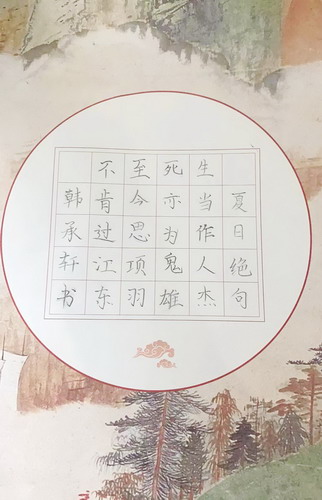 夏日绝句
生当作人杰
死亦为鬼雄
至今思项羽
不肯过江东
韩承轩书